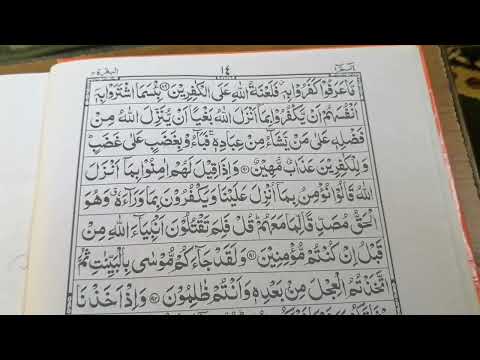 الٓمّٓ ١ ١٤ البقرة ٢
مَّا عَرَفُوْا كَفَرُوْا بِهٖ٘ فَلَعْنَةُ اللّٰهِ عَلَى الْكٰفِرِيْنَ۝۸۹ بِئْسَمَا اشْتَرَوْا بِهٖۤ
اَنْفُسَهُمْ اَنْ يَّكْفُرُوْا بِمَاۤ اَنْزَلَ اللّٰهُ بَغْيًا اَنْ يُّنَزِّلَ اللّٰهُ مِنْ
فَضْلِهٖ عَلٰى مَنْ يَّشَآءُ مِنْ عِبَادِهٖ١ۚ فَبَآءُوْ بِغَضَبٍ عَلٰى غَضَبٍ١ؕ
وَ لِلْكٰفِرِيْنَ عَذَابٌ مُّهِيْنٌ۝۹۰ وَ اِذَا قِيْلَ لَهُمْ اٰمِنُوْا بِمَاۤ اَنْزَلَ
اللّٰهُ قَالُوْا نُؤْمِنُ بِمَاۤ اُنْزِلَ عَلَيْنَا وَ يَكْفُرُوْنَ بِمَا وَرَآءَهٗ١ۗ وَ هُوَ
الْحَقُّ مُصَدِّقًا لِّمَا مَعَهُمْ١ؕ قُلْ فَلِمَ تَقْتُلُوْنَ اَنْۢبِيَآءَ اللّٰهِ مِنْ
قَبْلُ اِنْ كُنْتُمْ مُّؤْمِنِيْنَ۝۹۱ وَ لَقَدْ جَآءَكُمْ مُّوْسٰى بِالْبَيِّنٰتِ ثُمَّ
اتَّخَذْتُمُ الْعِجْلَ مِنْۢ بَعْدِهٖ وَ اَنْتُمْ ظٰلِمُوْنَ۝۹۲ وَ اِذْ اَخَذْنَا